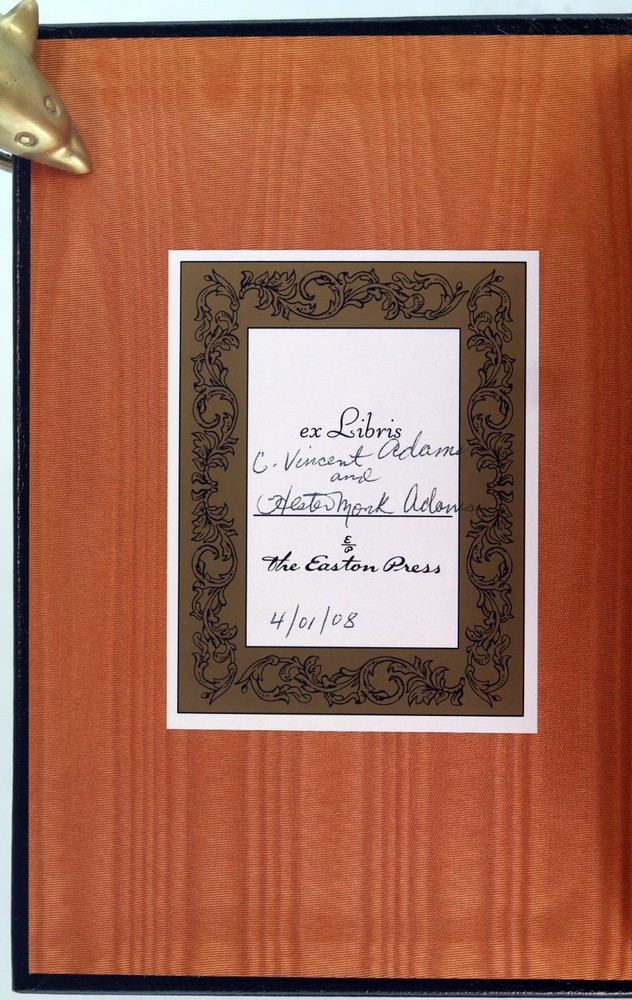 ex Libris
C. Vincent Adams
and
Hester Monk Adams
E/P
the Easton Press
4/01/08